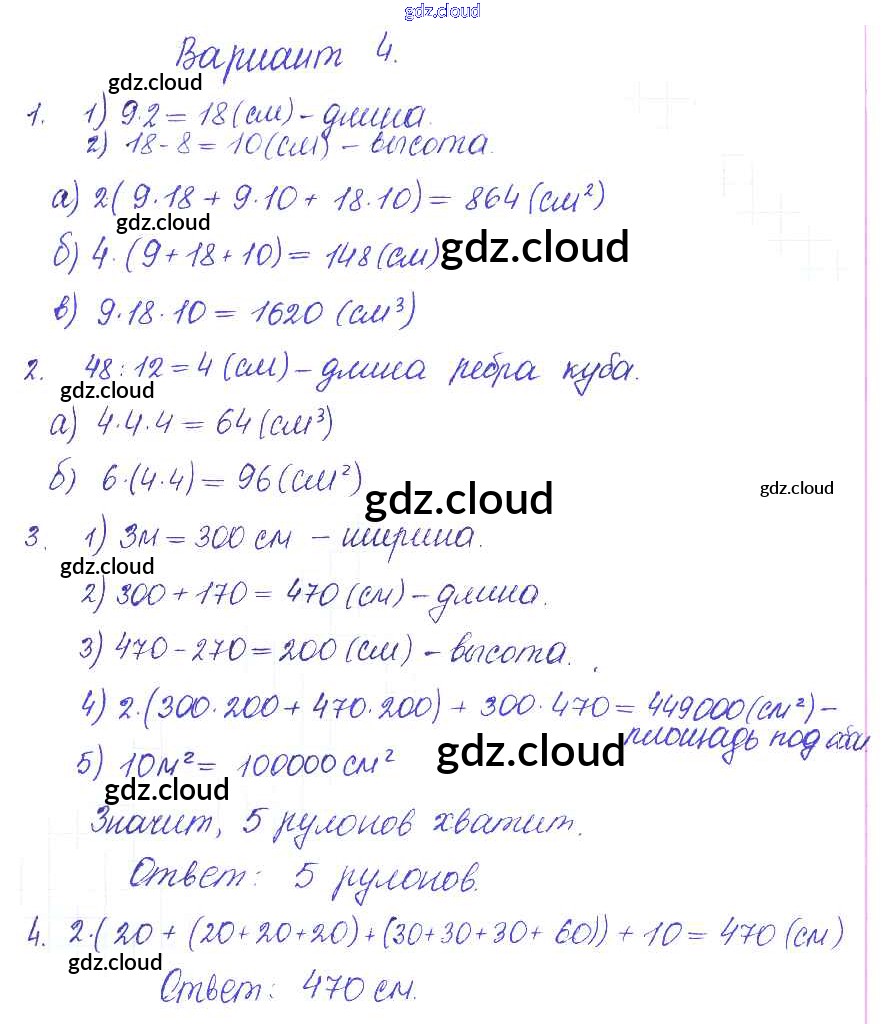 gdz.cloud
Вариант 4.
gdz.cloud
1. 1) 9·2 = 18 (см) – длина.
2) 18 - 8 = 10 (см) – высота.
а) 2(9·18 + 9·10 + 18·10) = 864 (см²)
gdz.cloud
б) 4·(9+18+10) = 148 (см)
gdz.cloud
в) 9·18·10 = 1620 (см³)
2. 48:12 = 4 (см) – длина ребра куба.
gdz.cloud
а) 4·4·4 = 64 (см³)
б) 6·(4·4) = 96 (см²)
gdz.cloud
gdz.cloud
3. 1) 3м = 300 см – ширина.
gdz.cloud
2) 300 + 170 = 470 (см) – длина.
3) 470 - 270 = 200 (см) – высота.
4) 2·(300·200 + 470·200) + 300·470 = 449000 (см²) –
площадь под обои
gdz.cloud
5) 10м² = 100000 см²
gdz.cloud
Значит, 5 рулонов хватит.
Ответ: 5 рулонов.
4. 2·(20 + (20+20+20) + (30+30+30+60)) + 10 = 470 (см)
gdz.cloud
Ответ: 470 см.